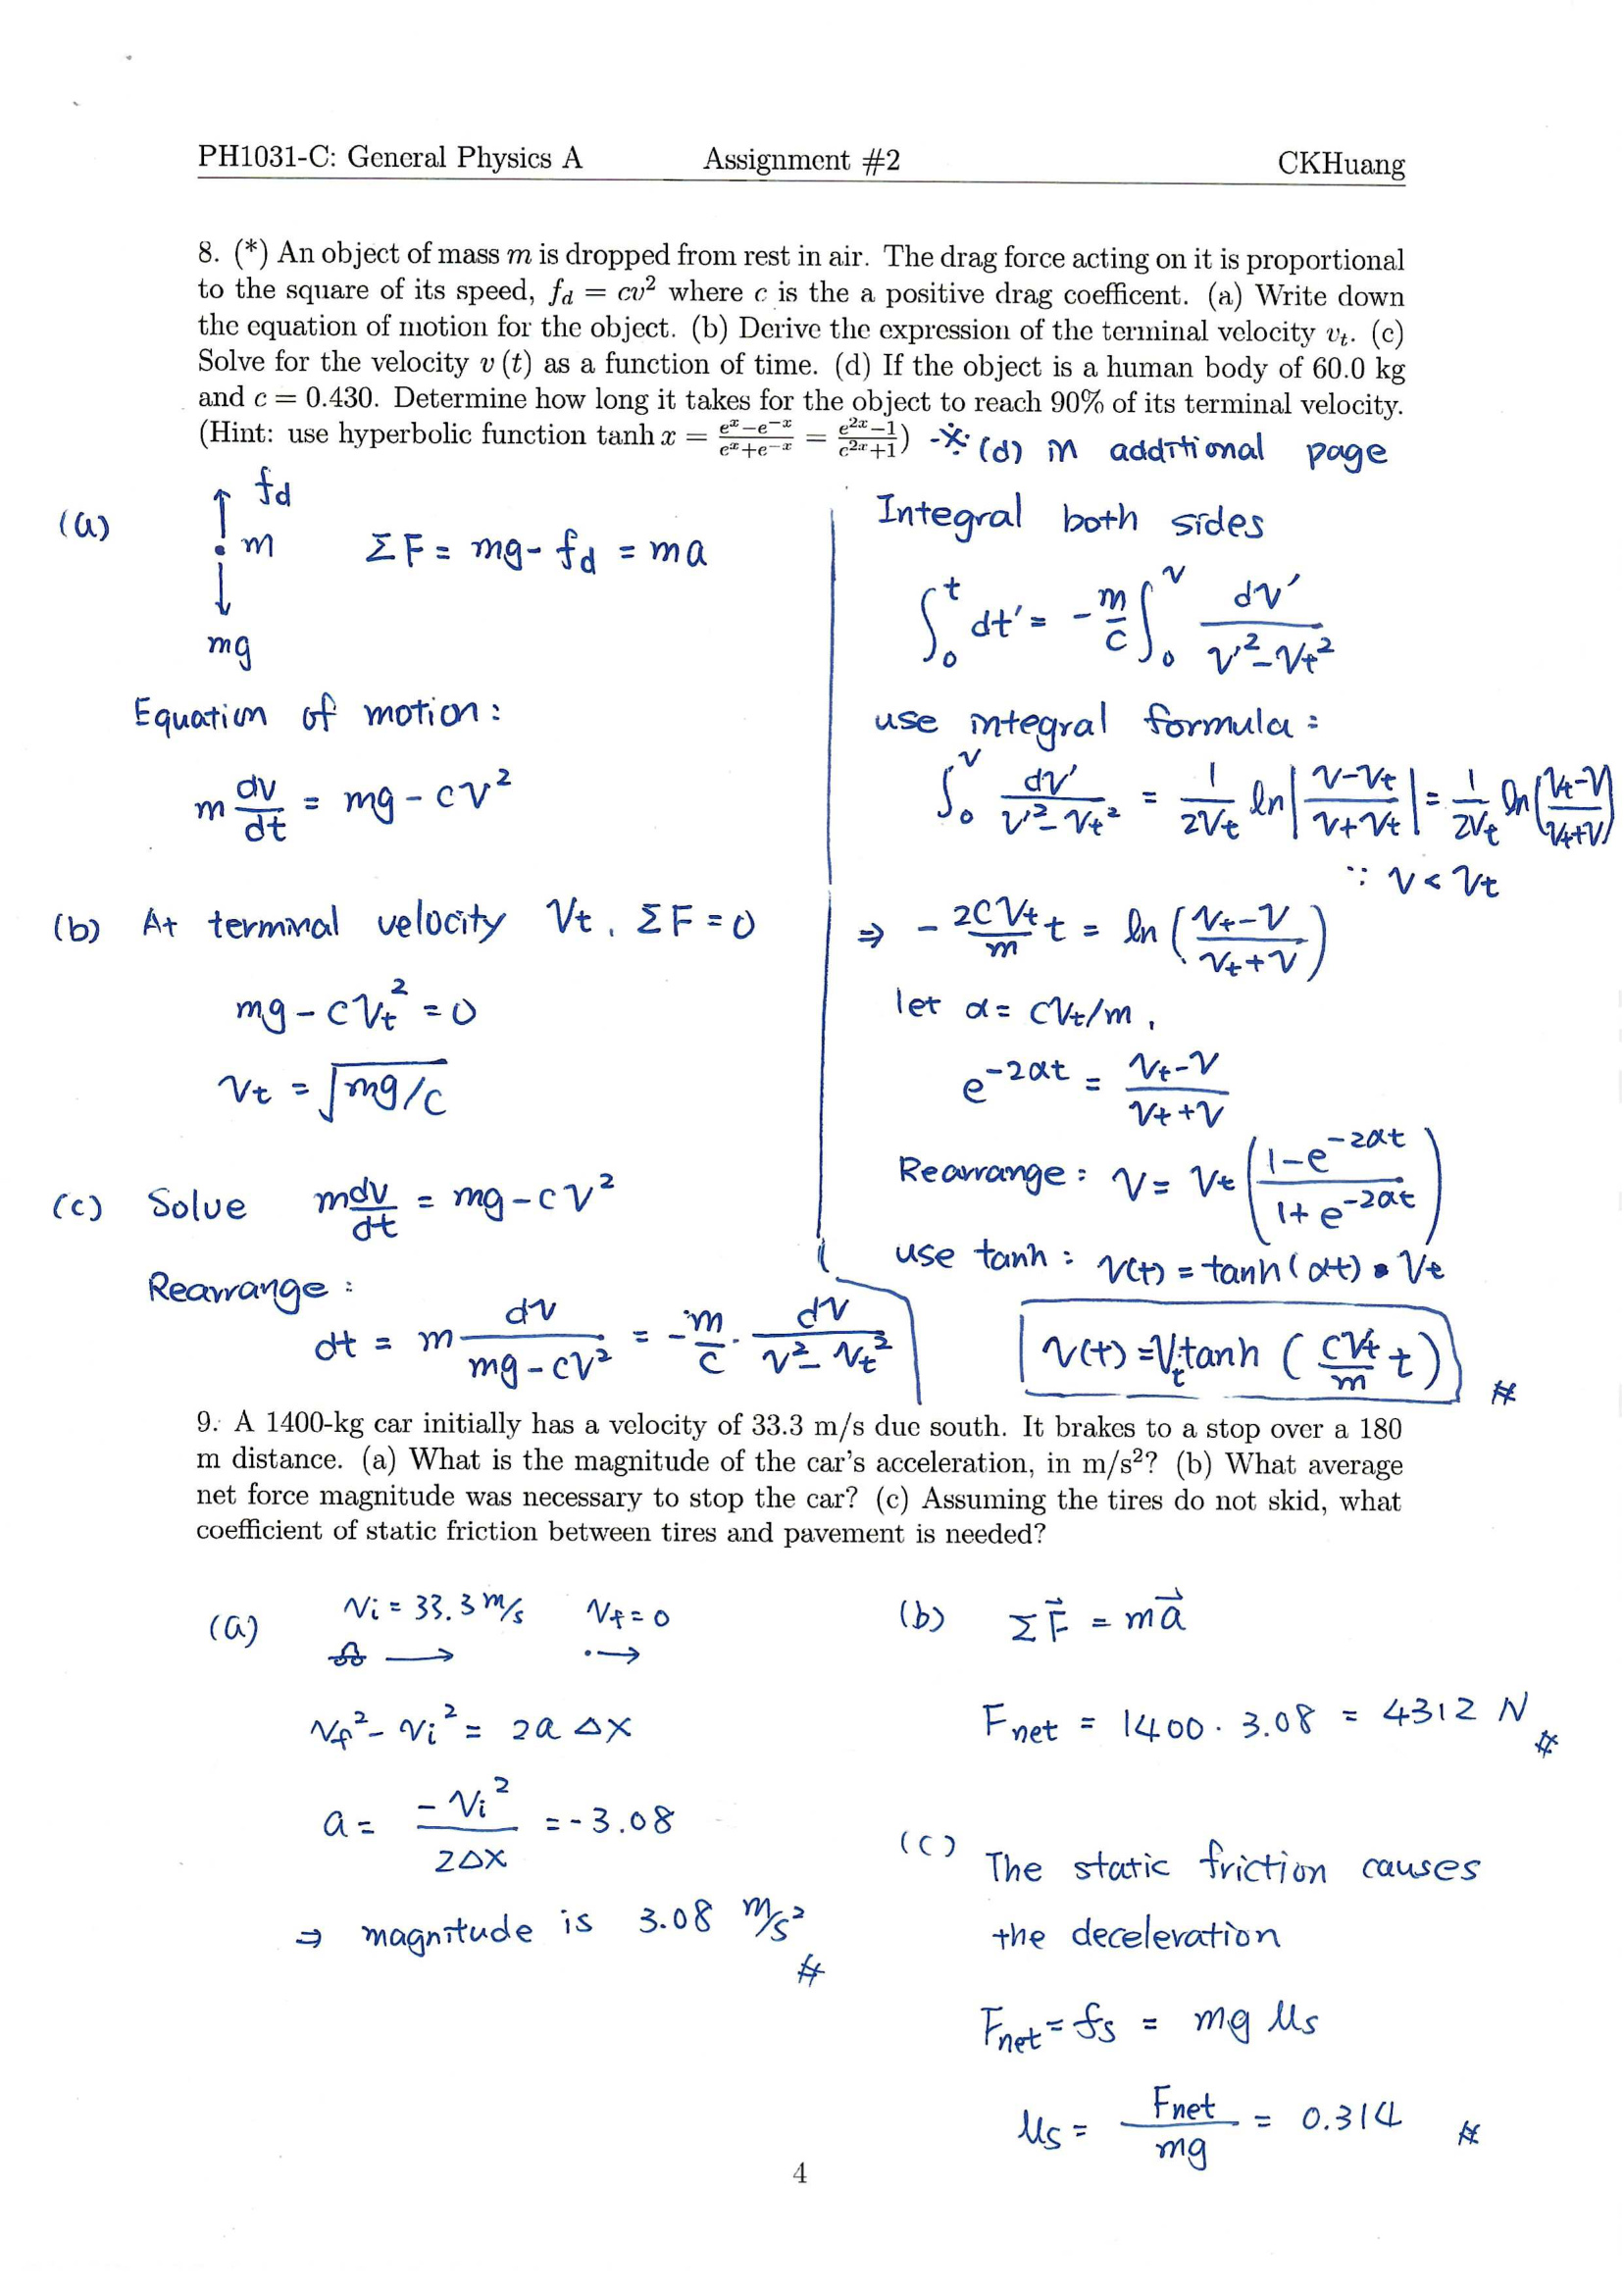 PH1031-C: General Physics A Assignment #2 CKHuang
8. (*) An object of mass m is dropped from rest in air. The drag force acting on it is proportional
to the square of its speed, f_d = cv² where c is the a positive drag coefficent. (a) Write down
the equation of motion for the object. (b) Derive the expression of the terminal velocity v_t. (c)
Solve for the velocity v (t) as a function of time. (d) If the object is a human body of 60.0 kg
and c = 0.430. Determine how long it takes for the object to reach 90% of its terminal velocity.
(Hint: use hyperbolic function tanh x = (e^x−e^−x)/(e^x+e^−x) = (e^2x−1)/(e^2x+1)) ※ (d) in additional page
(a)
fd
m
mg
ΣF = mg - fd = ma
Equation of motion:
m dv/dt = mg - cv²
(b) At terminal velocity Vt, ΣF = 0
mg - cVt² = 0
Vt = √(mg/c)
(c) Solve m dv/dt = mg - cv²
Rearrange:
dt = m dv/(mg - cv²) = -m/c · dv/(v² - Vt²)
Integral both sides
∫₀^t dt' = -m/c ∫₀^v dv'/(v² - Vt²)
use integral formula:
∫₀^v dv'/(v² - Vt²) = 1/(2Vt) ln|(v - Vt)/(v + Vt)| = 1/(2Vt) ln((Vt - v)/(Vt + v))
∵ v < Vt
⇒ - 2cVt/m t = ln((Vt - v)/(Vt + v))
let α = cVt/m,
e^(-2αt) = (Vt - v)/(Vt + v)
Rearrange: v = Vt((1 - e^(-2αt))/(1 + e^(-2αt)))
use tanh: v(t) = tanh(αt) • Vt
v(t) = Vt tanh(cVt/m t) #
9. A 1400-kg car initially has a velocity of 33.3 m/s due south. It brakes to a stop over a 180
m distance. (a) What is the magnitude of the car's acceleration, in m/s²? (b) What average
net force magnitude was necessary to stop the car? (c) Assuming the tires do not skid, what
coefficient of static friction between tires and pavement is needed?
(a) Vi = 33.3 m/s Vf = 0
Vf² - Vi² = 2a Δx
a = -Vi²/(2Δx) = -3.08
⇒ magnitude is 3.08 m/s² #
(b) ΣF⃗ = ma⃗
Fnet = 1400 · 3.08 = 4312 N #
(c) The static friction causes
the deceleration
Fnet = fs = mg μs
μs = Fnet/mg = 0.314 #
4